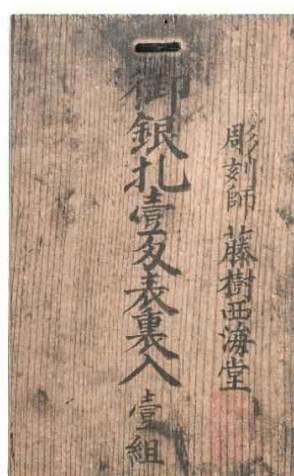 彫刻師 藤樹西海堂
御銀札壹匁表裏入 壹組